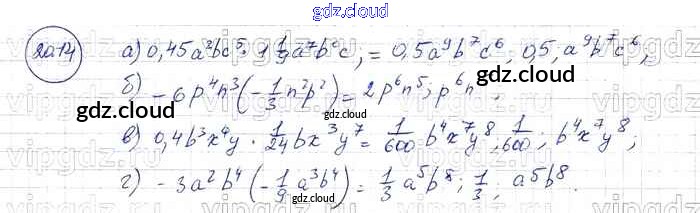 gdz.cloud
20.14 а) 0,45a²bc⁵ · 1 1/9 a⁷b⁶c, = 0,5a⁹b⁷c⁶, 0,5; a⁹b⁷c⁶;
б) -6p⁴n³(-1/3 n²p²) = 2p⁶n⁵; p⁶n
gdz.cloud gdz.cloud
в) 0,4b³x⁴y · 1/24 bx³y⁷ = 1/600 · b⁴x⁷y⁸, 1/600; b⁴x⁷y⁸;
г) -3a²b⁴(-1/9 a³b⁴) = 1/3 a⁵b⁸; 1/3; a⁵b⁸.
gdz.cloud gdz.cloud